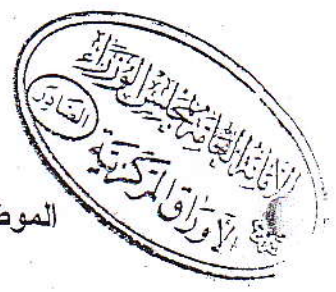 الأمانة العامة لمجلس الوزراء
الصادر
الأوراق المركزية
الموض